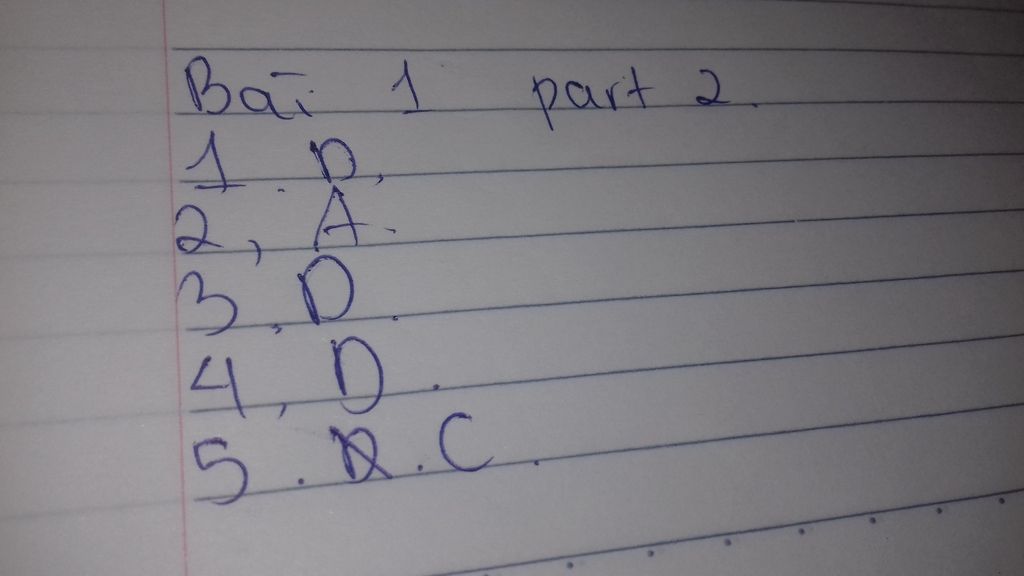 Bài 1 part 2.
1. D.
2, A.
3, D.
4, D.
5. D. C.